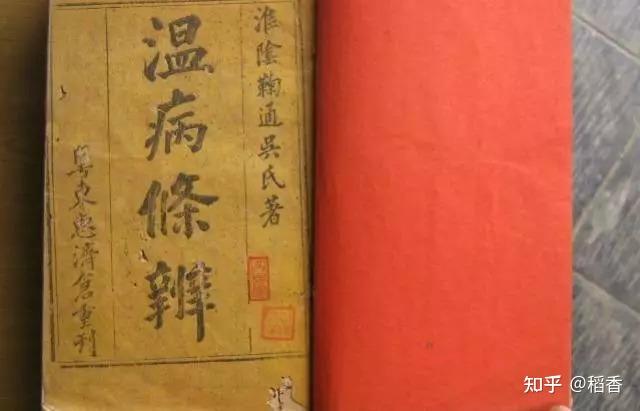 淮陰鞠通吳氏著
温病條辨
粵東惠濟倉重刊
知乎 @稻香